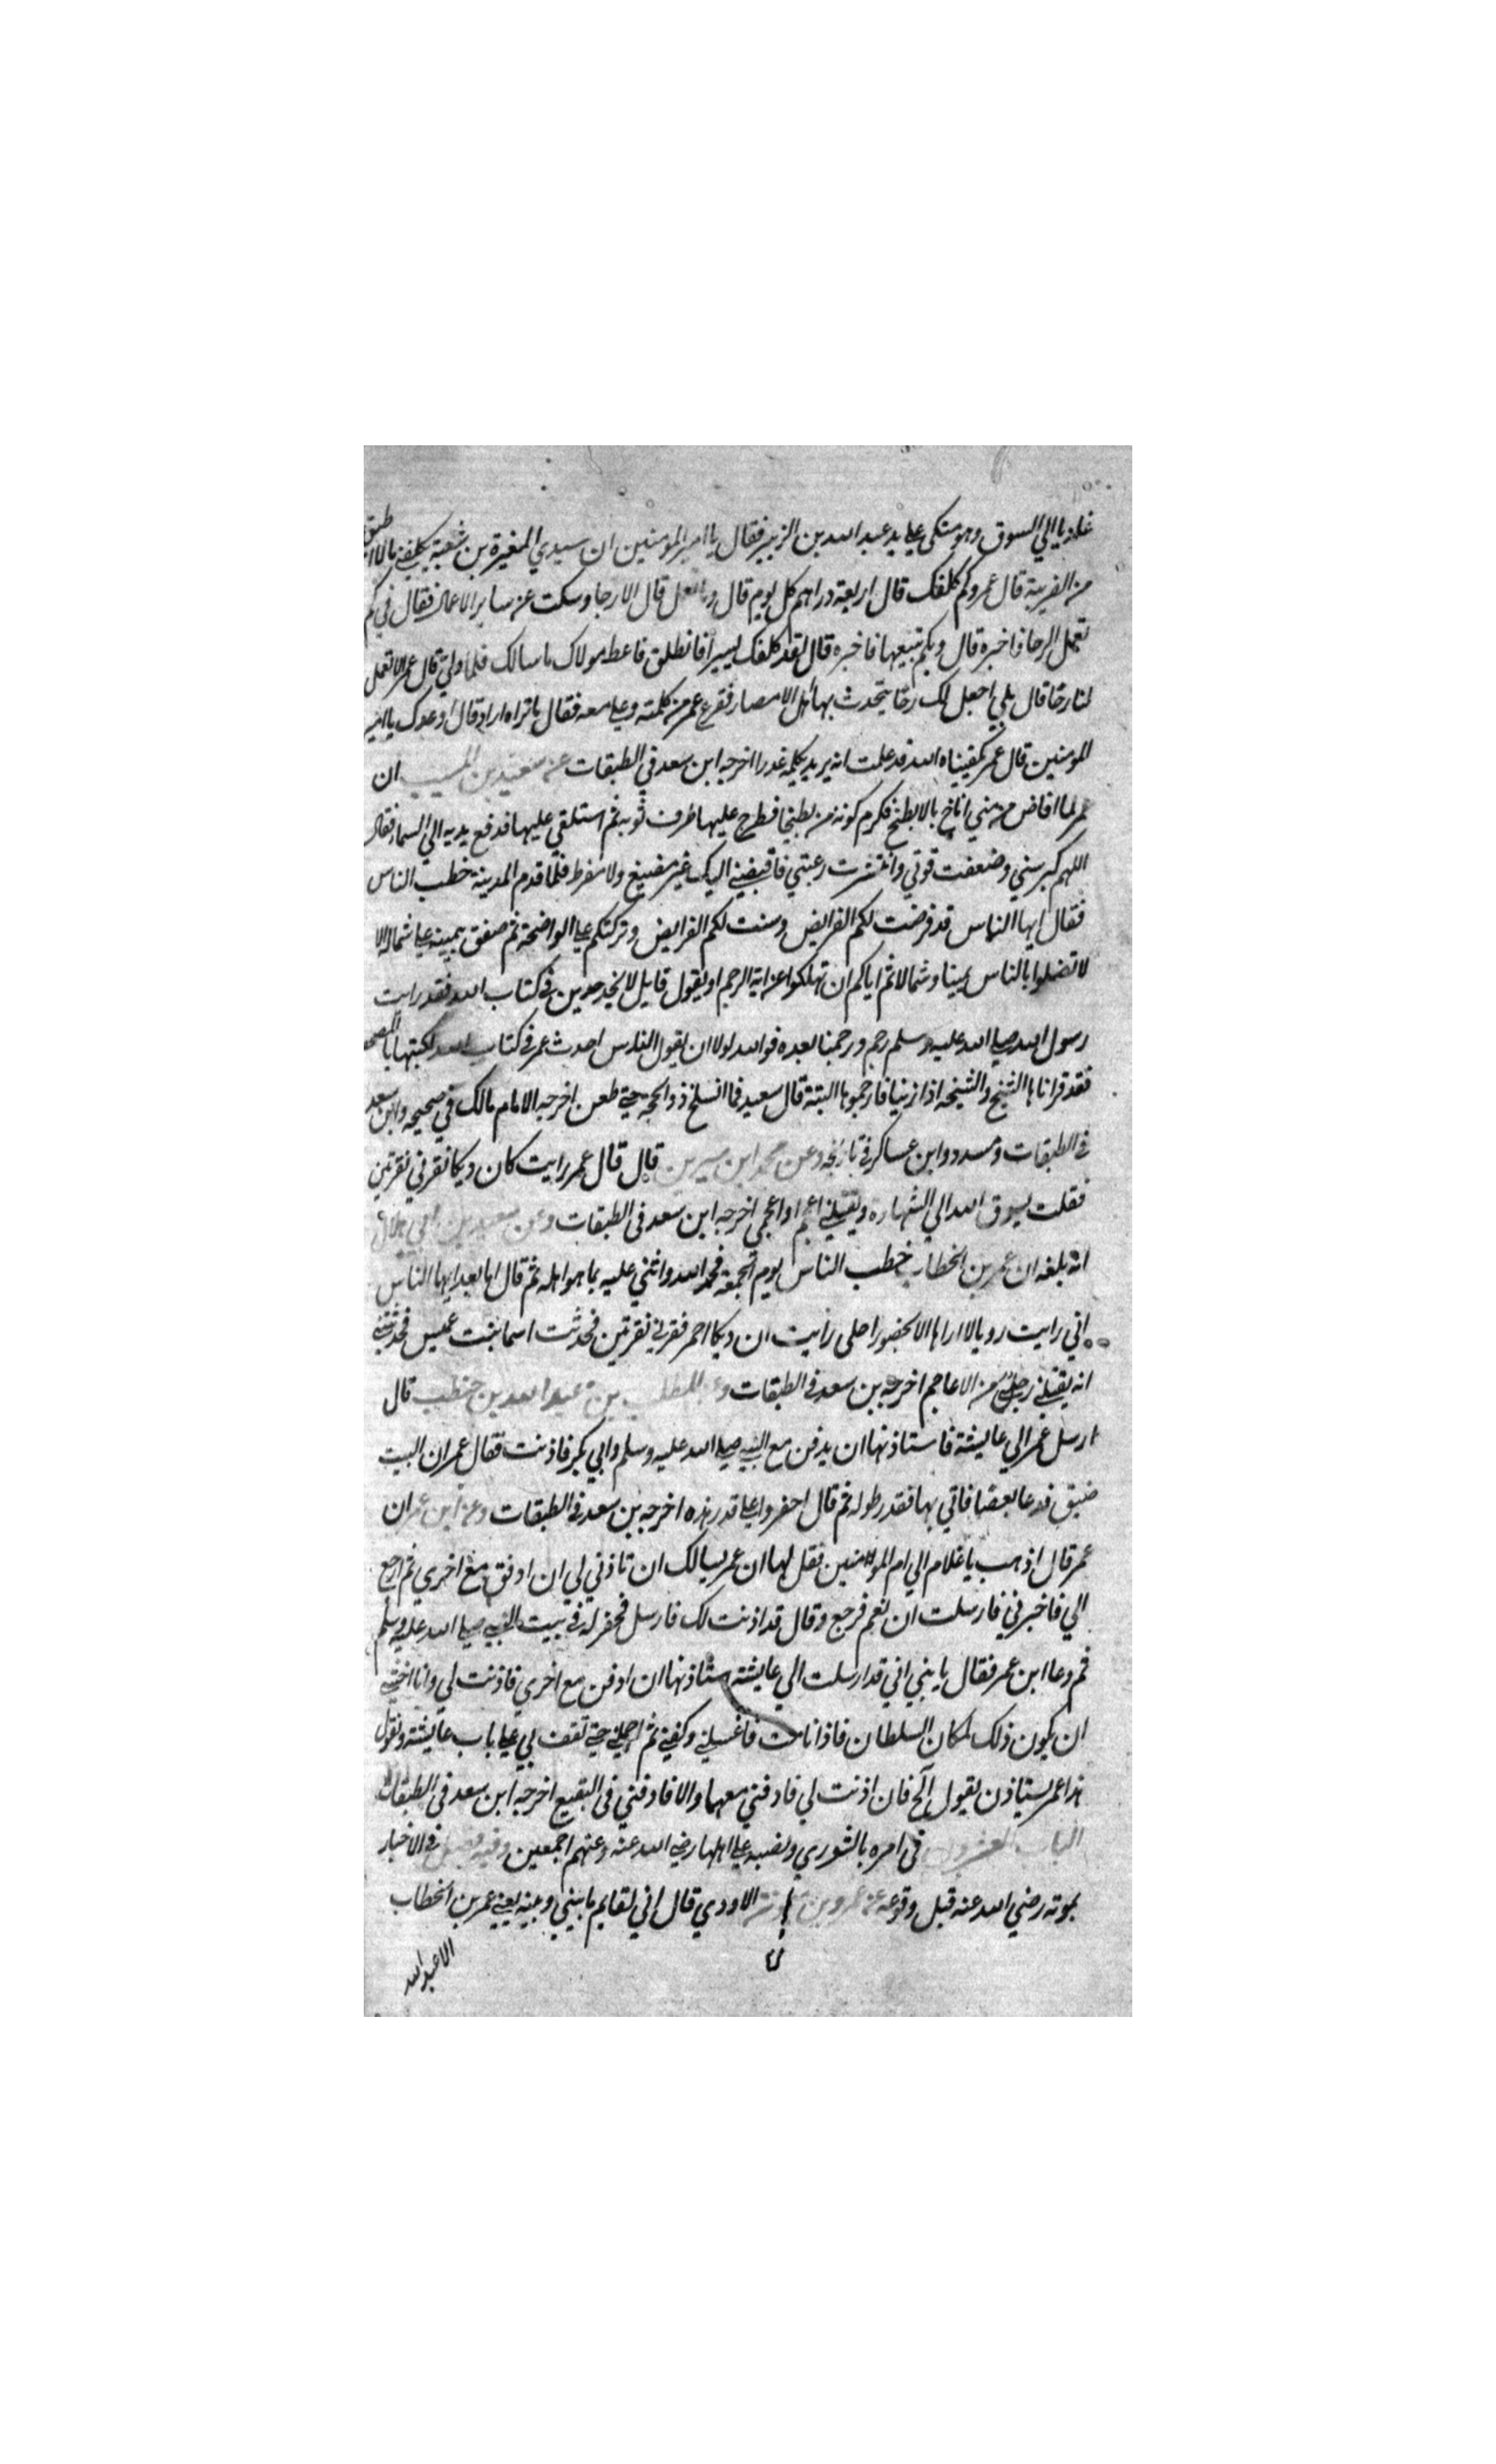 غاديا الي السوق وهو متكي علي يد عبد الله بن الزبير فقال يا امير المومنين ان سيدي المغيرة بن شعبة يكلفني ما لا اطيق
من الضريبة قال عمر وكم كلفك قال اربعة دراهم كل يوم قال وما تعمل قال الارحا وسكت عن ساير الاعمال فقال في كم
تعمل الرحا فاخبره قال وبكم تبيعها فاخبره قال لقد كلفك يسيرا فانطلق فاعط مولاك ما سالك فلما ولي قال عمر الا تعمل
لنا رحا قال بلي اجعل لك رحا يتحدث بها اهل الامصار ففزع عمر من كلمته وعلي معه فقال ما تراه اراد قال اوعدك يا امير
المومنين قال عمر يكفيناه الله قد علمت انه يريد بكلمه غدرا اخرجه ابن سعد في الطبقات عن سعيد بن المسيب ان
عمر لما افاض من مني اناخ بالابطح فكوم كومة من بطحا فطرح عليها طرف ثوبه ثم استلقي عليها فدفع يديه الي السماء فقال
اللهم كبر سني وضعفت قوتي وانتشرت رعيتي فاقبضني اليك غير مضيع ولا مفرط فلما قدم المدينة خطب الناس
فقال ايها الناس قد فرضت لكم الفرايض وسنت لكم الفرايض وتركتكم علي الواضحة ثم صفق بيمينه علي شماله الا
لا تضلوا بالناس يمينا وشمالا ثم اياكم ان تهلكوا عن اية الرجم او يقول قايل لا نجد حدين في كتاب الله فقد رايت
رسول الله صلي الله عليه وسلم رجم ورجمنا بعده فوالله لولا ان يقول الناس احدث عمر في كتاب الله لكتبتها بالمصحف
فقد قراناها الشيخ والشيخه اذا زنيا فارجموها البتة قال سعيد فما انسلخ ذو الحجه حتي طعن اخرجه الامام مالك في صحيحه وابن سعد
في الطبقات ومسدد وابن عساكر في تاريخه وعن محمد ابن سيرين قال قال عمر رايت كان ديكا نقرني نقرتين
فقلت يسوق الله الي الشهاده ويقتلني اعجم او اعجمي اخرجه ابن سعد في الطبقات وعن سعيد بن ابي هلال
انه بلغه ان عمر بن الخطاب خطب الناس يوم الجمعة فحمد الله واثني عليه بما هو اهله ثم قال اما بعد ايها الناس
اني رايت رويا لا اراها الا لحضور اجلي رايت ان ديكا احمر نقرني نقرتين فحدثت اسما بنت عميس فحدثتني
انه يقتلني رجل من الاعاجم اخرجه بن سعد في الطبقات وعن المطلب بن عبد الله بن حنطب قال
ارسل عمر الي عايشة فاستاذنها ان يدفن مع النبي صلي الله عليه وسلم وابي بكر فاذنت فقال عمر ان البيت
ضيق فدعا بعصا فاتي بها فقدر طوله ثم قال احفروا علي قدر هذه اخرجه بن سعد في الطبقات وعن ابن عمر ان
عمر قال اذهب يا غلام الي ام المومنين فقل لها ان عمر يسالك ان تاذني لي ان ادفن مع اخوي ثم ارجع
الي فاخبرني فارسلت ان نعم فرجع وقال قد اذنت لك فارسل فحفر له في بيت النبي صلي الله عليه وسلم
ثم دعا ابن عمر فقال يا بني اني قد ارسلت الي عايشة ستاذنها ان ادفن مع اخوي فاذنت لي وانا اخشي
ان يكون ذلك لمكان السلطان فاذا انا مت فاغسلني وكفني ثم احملني حتي تقف بي علي باب عايشة وتقول
هذا عمر يستاذن يقول آلج فان اذنت لي فادفني معهما والا فادفني في البقيع اخرجه ابن سعد في الطبقات
الباب العشرون في امره بالشوري ونصبه علي اهلها رضي الله عنه وعنهم اجمعين وفيه فصل في الاخبار
بموته رضي الله عنه قبل وقوعه عن عمرو بن ميمونة الاودي قال اني لقايم ما بيني وبينه يعني عمر بن الخطاب
الا عبد الله